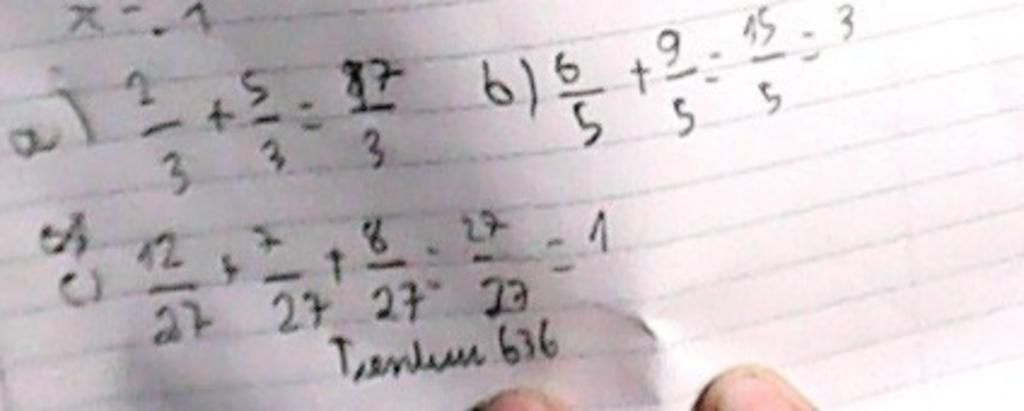 x = -1
a) 2/3 + 5/3 = 7/3 b) 6/5 + 9/5 = 15/5 = 3
c) 12/27 + 7/27 + 8/27 = 27/27 = 1
636